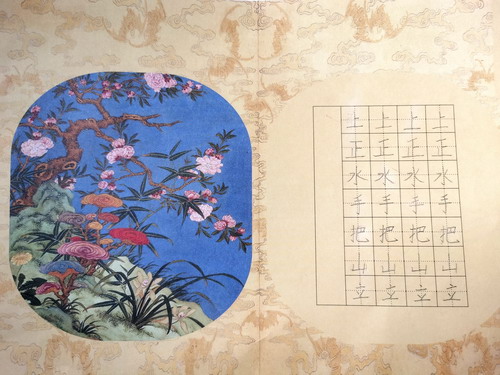 上上上上
正正正正
水水水水
手手手手
把把把把
山山山山
立立立立